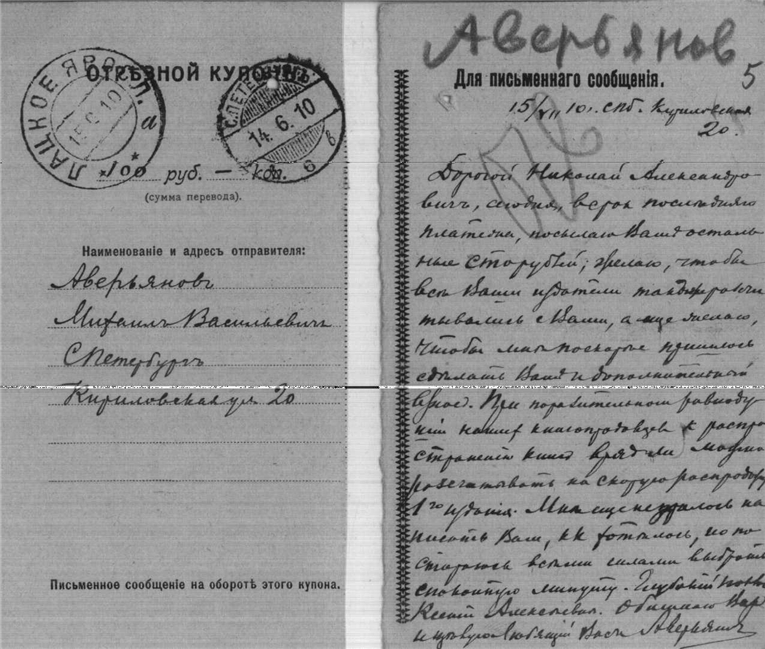 ОТРѢЗНОЙ КУПОНЪ
ЛАЦКОЕ ЯРОСЛ.
15.6.10
а
С.ПЕТЕРБУРГЪ
14.6.10
6 в
*100* руб. — коп.
(сумма перевода).
Наименованіе и адресъ отправителя:
Аверьяновъ
Михаилъ Васильевичъ
С Петербургъ
Кириловская ул. 20
Письменное сообщеніе на оборотѣ этого купона.
Аверьянов
5
Для письменнаго сообщенія.
15/ 10 г. СПб. Кириловская
20.
Дорогой Николай Александро
вичъ, сегодня, въ срок послѣдняго
платежа, посылаю Вамъ осталь
ные сто рублей; желаю, чтобы
всѣ Ваши издатели так
тывались с Вами, а еще желаю,
чтобы мнѣ поскорѣе пришлось
сдѣлать Вамъ и дополнительный
взнос. При поразительном равноду
шіи наших книгопродавцев к распро
страненію книг врядъ ли можно
разсчитывать на скорую распродажу
1го изданія. Мнѣ еще не удалось на
писать Вам, как хотѣлось, но по
стараюсь всѣми силами выбрать
спокойную минуту. Глубокій
Ксеніи Алексѣевнѣ. Обнимаю Вас
и цѣлую Любящій Васъ Аверьяновъ